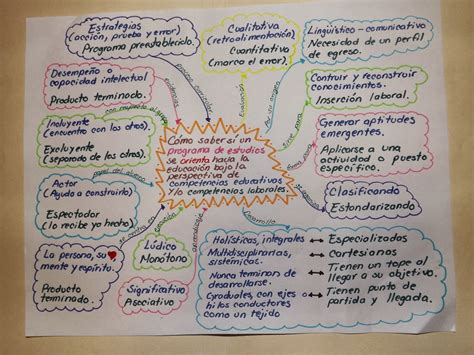 Estrategias
(acción, prueba y error)
Programa preestablecido.
Cualitativa
(retroalimentación)
Cuantitativa
(marca el error).
Lingüístico - comunicativo
Necesidad de un perfil
de egreso.
Desempeño o
capacidad intelectual
Producto terminado.
Contruir y reconstruir
conocimientos.
Inserción laboral.
Incluyente
(encuentro con los otros).
Excluyente
(separado de los otros).
Cómo saber si un
programa de estudios
se orienta hacia la
educación bajo la
perspectiva de
competencias educativas
y/o competencias laborales.
Generar aptitudes
emergentes.
Aplicarse a una
actividad o puesto
específico.
Actor
(Ayuda a construirlo)
Espectador
(lo recibe ya hecho)
Clasificando
Estandarizando
La persona, su
mente y espíritu.
Producto
terminado.
Lúdico
Monótono
Significativo
Asociativo
Evaluación
papel del alumno
Desarrollo
Holísticas, integrales ↔ Especializadas
Multidisciplinarias, ↔ Cartesianas
sistémicas.
Nunca terminan de ↔ Tienen un tope al
desarrollarse. llegar a su objetivo.
Graduales, con ejes ↔ Tienen punto de
hilos conductores partida y llegada.
como un tejido